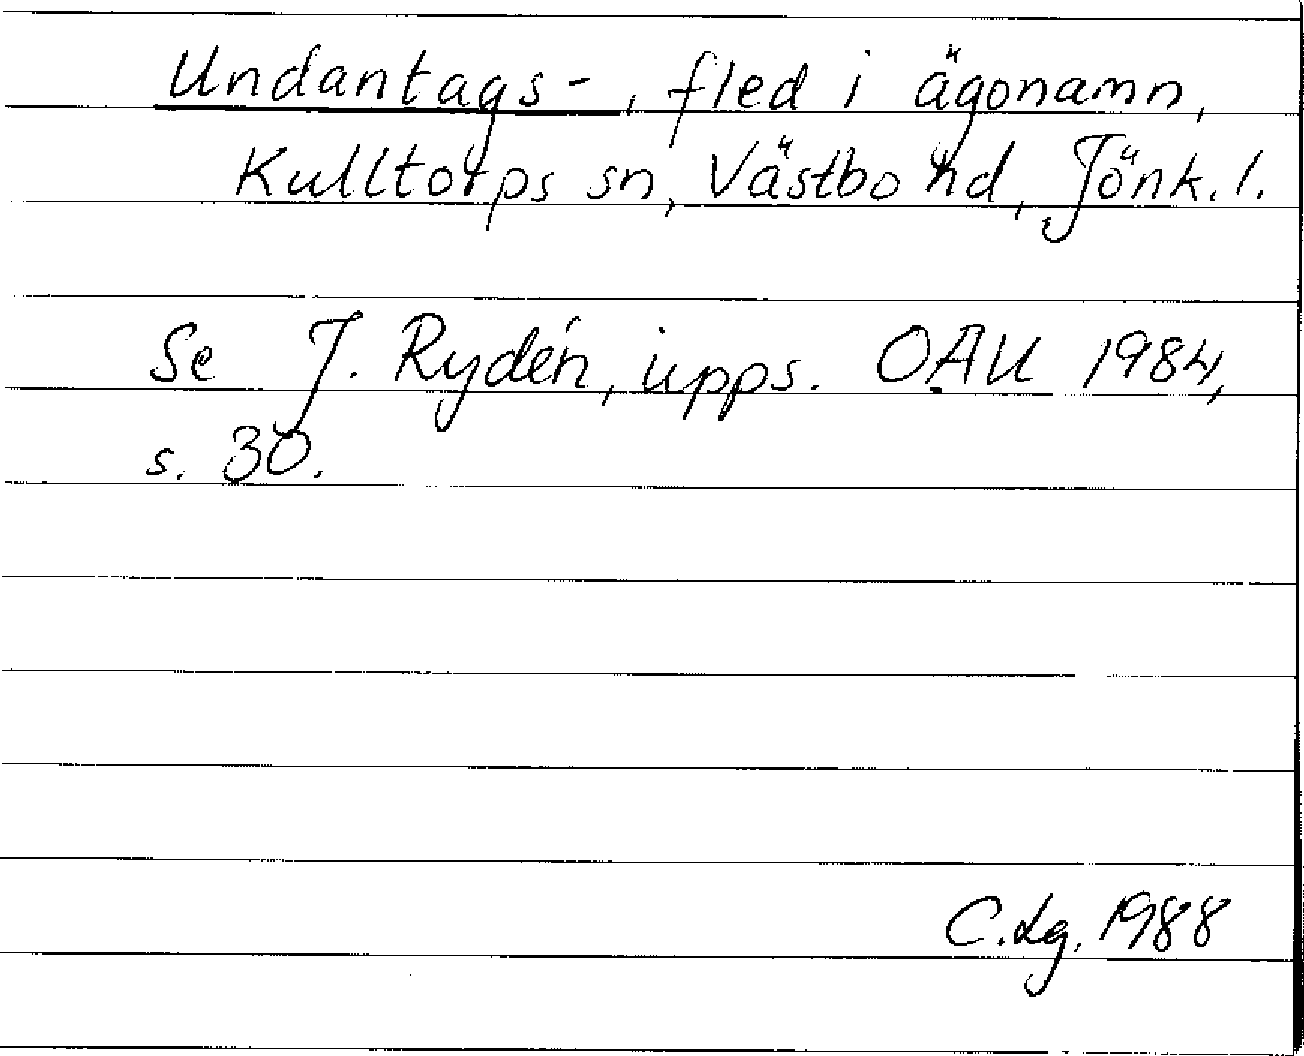 Undantags-, fled i ägonamn,
Kulltorps sn, Västbo hd, Jönk. l.
Se J. Rydén, upps. OAU 1984,
s. 30.
C.Lg. 1988